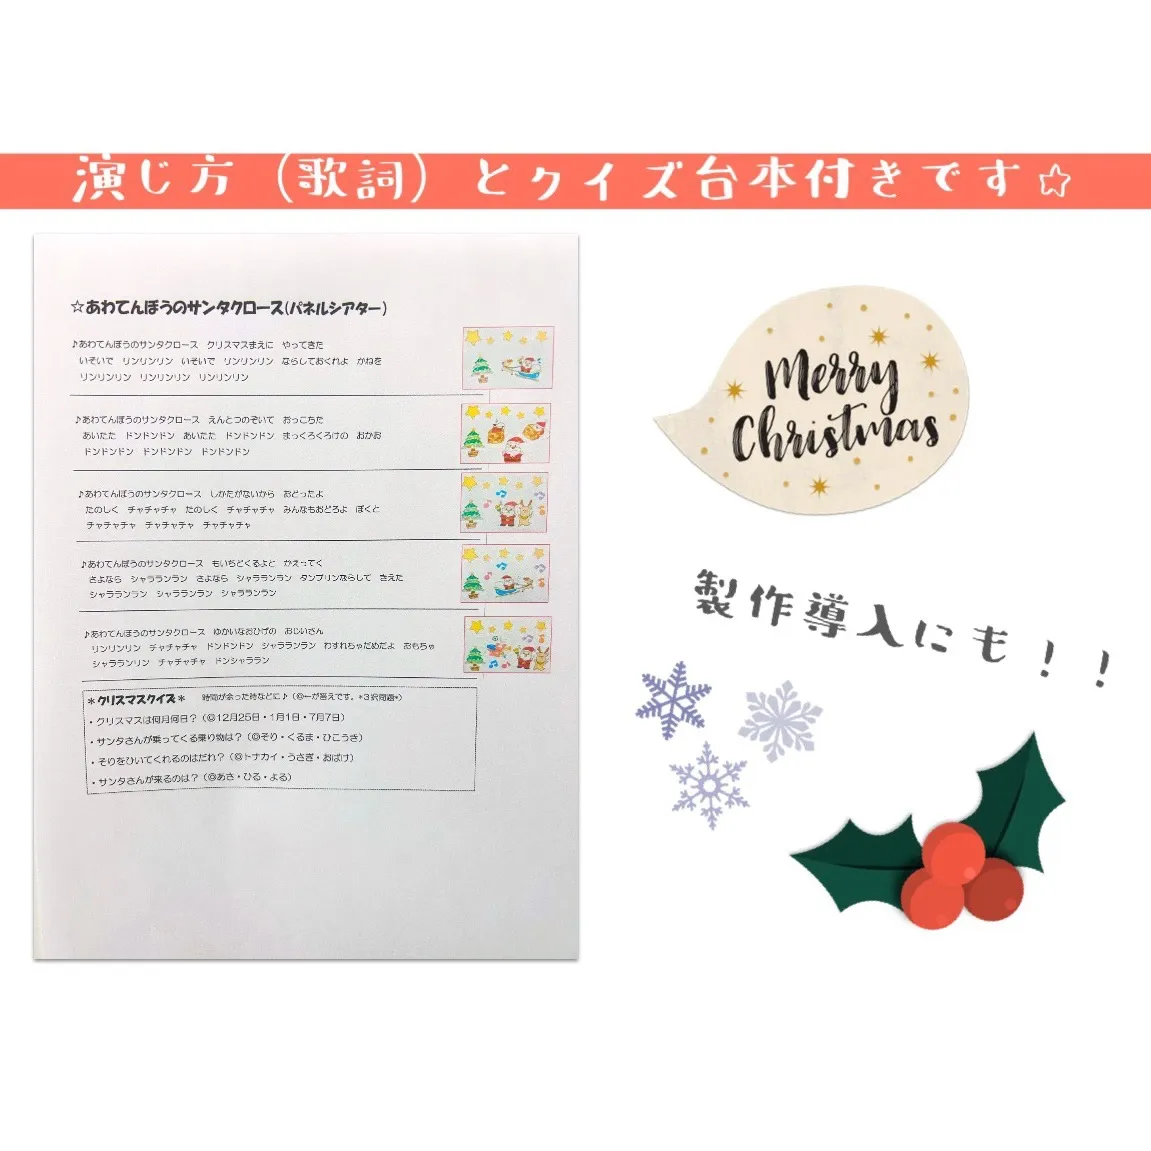 演じ方（歌詞）とクイズ台本付きです☆
☆あわてんぼうのサンタクロース(パネルシアター)
♪あわてんぼうのサンタクロース　クリスマスまえに　やってきた
いそいで　リンリンリン　いそいで　リンリンリン　ならしておくれよ　かねを
リンリンリン　リンリンリン　リンリンリン
♪あわてんぼうのサンタクロース　えんとつのぞいて　おっこちた
あいたた　ドンドンドン　あいたた　ドンドンドン　まっくろくろけの　おかお
ドンドンドン　ドンドンドン　ドンドンドン
♪あわてんぼうのサンタクロース　しかたがないから　おどったよ
たのしく　チャチャチャ　たのしく　チャチャチャ　みんなもおどろよ　ぼくと
チャチャチャ　チャチャチャ　チャチャチャ
♪あわてんぼうのサンタクロース　もいちどくるよと　かえってく
さよなら　シャラランラン　さよなら　シャラランラン　タンブリンならして　きえた
シャラランラン　シャラランラン　シャラランラン
♪あわてんぼうのサンタクロース　ゆかいなおひげの　おじいさん
リンリンリン　チャチャチャ　ドンドンドン　シャラランラン　わすれちゃだめだよ　おもちゃ
シャラランリン　チャチャチャ　ドンシャララン
＊クリスマスクイズ＊　時間が余った時などに♪（◎←が答えです。*３択問題*）
・クリスマスは何月何日？（◎12月25日・1月1日・7月7日）
・サンタさんが乗ってくる乗り物は？（◎そり・くるま・ひこうき）
・そりをひいてくれるのはだれ？（◎トナカイ・うさぎ・おばけ）
・サンタさんが来るのは？（◎あさ・ひる・よる）
Merry
Christmas
製作導入にも！！